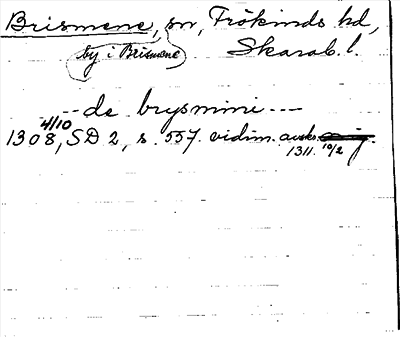 Brismene, sn, Frökinds hd,
by i Brismene
Skarab. l.
-- de brysmini ---
4/10
1308, SD 2, s. 557. vidim. avskr.
1311 10/2